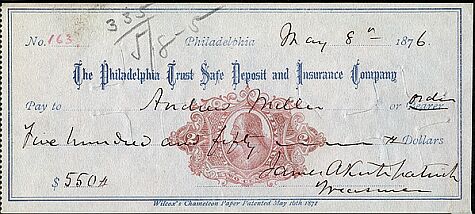 335
5/8-5
No. 163 Philadelphia May 8th 1876.
The Philadelphia Trust Safe Deposit and Insurance Company
Pay to Andrew Miller or Bearer order
Five hundred and fifty Dollars
$ 550
James A Kirkpatrick
Treasurer
Wilcox's Chameleon Paper Patented May 16th 1871